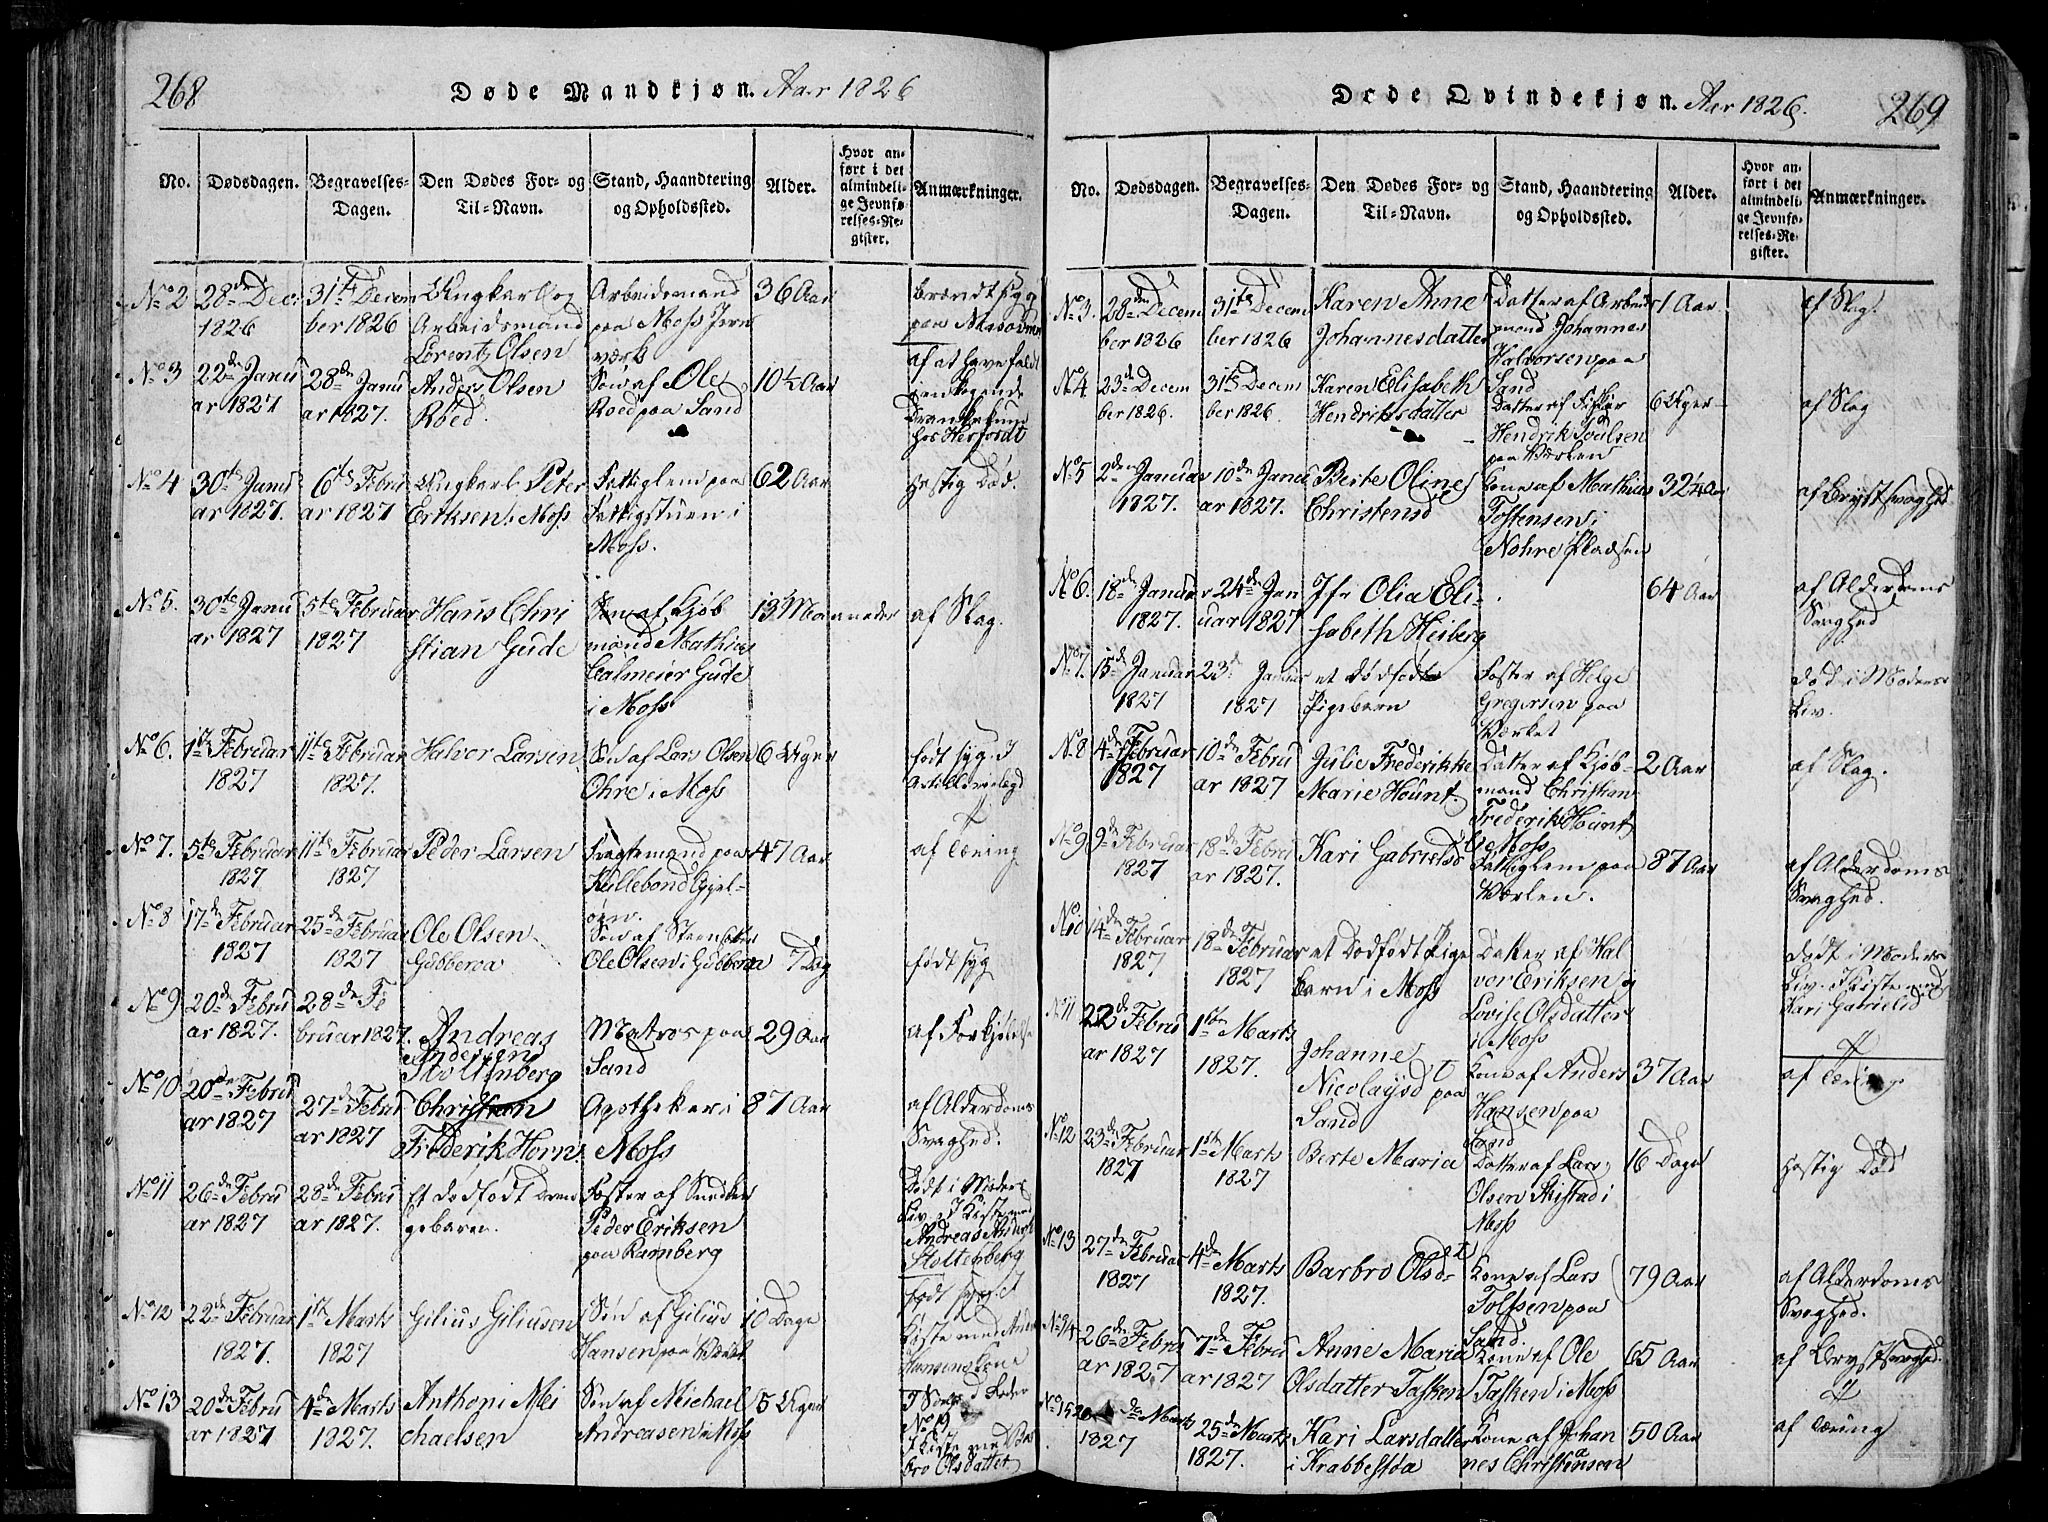 268
Døde Mandkjøn. Aar 1826
No.
Dødsdagen.
Begravelses-
Dagen.
Den Dødes For- og
Til-Navn.
Stand, Haandtering
og Opholdssted.
Alder.
Hvor an-
ført i det
almindeli-
ge Jevnfø-
relses-Re-
gister.
Anmærkninger.
No 2
28de Dec
1826
31te Decem
ber 1826
Ungkarl og
Arbeidsmand
Lorentz Olsen
Arbeidsmand
paa Moss Jern
værk
36 Aar
No 3
22de Janu
ar 1827
28de Janu
ar 1827.
Anders Olsen
Röed.
Søn af Ole
Roed paa Sand
10½ Aar
af at have faldt
hos Herfordt
No 4
30te Janu
ar 1827.
6te Febru
ar 1827
Ungkarl Peter
Eriksen i Moss
Fattiglem paa
Fattigstuen i
Moss.
62 Aar
Hastig Död.
No 5.
30te Janu
ar 1827
5te Februar
1827
Hans Chri
stian Gude
Søn af Kjöb
mand Mathias
Calmeier Gude
i Moss
13 Maaneder
af Slag.
No 6.
1ste Februar
1827
11te Februar
1827.
Halvor Larsen
Søn af Lars Olsen
Ohre i Moss
6 Uger
født syg.
No 7.
5te Februar
1827
11te Februar
1827
Peder Larsen
47 Aar
af Tæring
No 8
17de Februar
1827
25de Februar
1827
Ole Olsen
Gubberoa
Søn af
Ole Olsen i Gubberoa
7 Dag
født syg
No 9
20de Febru
ar 1827.
28de Fe
bruar 1827.
Andreas
Andersen
Stoltenberg
Matros paa
Sand
29 Aar
af Forkjølelse
No 10
20de Febru
ar 1827
27de Febru
ar 1827
Christian
Frederik Horn.
Apotheker i
Moss
87 Aar
af Alderdoms
Svaghed.
No 11
26de Febru
ar 1827
28de Febru
ar 1827.
Et dødfødt Dren
gebarn.
Foster af
Peder Eriksen
paa Ramberg
Dødt i Moders
Liv. I Kiste med
Andreas Anders
Stoltenberg
No 12
22de Februar
1827.
1ste Marts
1827
Gilius Giliusen
Søn af Gilius
Hansen paa Værket
10 Dage
født syg
Kiste med
Hansens Kone
No 13
20de Febru
ar 1827
4de Marts
1827.
Anthoni Mi
chaelsen
Søn af Michael
Andreasen i Moss
5 Uger
I Kiste med Bar
bro Olsdatter
269
Døde Qvindekjøn. Aar 1826.
No.
Dødsdagen.
Begravelses-
Dagen.
Den Dødes For- og
Til-Navn.
Stand, Haandtering
og Opholdssted.
Alder.
Hvor an-
ført i det
almindeli-
ge Jevnfø-
relses-Re-
gister.
Anmærkninger.
No 3.
28de Decem
ber 1826
31te Decem
ber 1826
Karen Anne
Johannesdatter
Datter af Arbeids
mand Johannes
Halvorsen paa
Sand
1 Aar
af Slag.
No 4
23de Decem
ber 1826.
31te Decem
ber 1826.
Karen Elisabeth
Hendriksdatter
Datter af Fisker
Hendrik Poulsen
paa Værken
6 Uger
af Slag
No 5
2den Januar
1827.
10de Janu
ar 1827.
Berte Oline
Christensd
Kone af Mathias
Tostensen i
Nohre Pladsen
32½ Aar
af Brystsvaghed
No 6.
18de Januar
1827.
24de Jan
uar 1827
Jfr Olia Eli-
sabeth Heiberg
64 Aar
af Alderdoms
Svaghed
No 7.
15de Januar
1827
23de Januar
1827
et dødfødt
Pigebarn
Foster af Helge
Gregersen paa
Værket
død i Moders
Liv.
No 8
4de Februar
1827
10de Febru
ar 1827
Julie Frederikke
Marie Hount.
Datter af Kjöb-
mand Christian
Frederik Hount
i Moss
2 Aar
af Slag.
No 9
9de Februar
1827
18de Febru
ar 1827.
Kari Gabrielsd
Fattiglem paa
Værken.
87 Aar
af Alderdoms
Svaghed.
No 10
14de Februar
1827
18de Februar
1827
et Dødfødt Pige
barn i Moss
Datter af Hal
vor Eriksen og
Lovise Olsdatter
i Moss
dødt i Moders
Liv. I Kiste med
Kari Gabrielsd
No 11
22de Febru
ar 1827
1ste Marts
1827.
Johanne
Nicolaysd paa
Sand
Kone af Anders
Hansen paa
Sand
37 Aar
af Tæring
No 12
23de Februar
1827
1ste Marts
1827
Berte Maria
Datter af Lars
Olsen Skistad i
Moss
16 Dage
Hastig Død
No 13
27de Februar
1827
4de Marts
1827.
Barbro Olsd
Kone af Lars
Tolfsen paa
Sand.
79 Aar
af Alderdoms
Svaghed.
No 14
26de Febru
ar 1827
7de Febru
ar 1827
Anne Maria
Olsdatter Tasken
Kone af Ole
Tasken i Moss
65 Aar
af Brystsvaghed.
No 15
de Marts
1827
25de Marts
1827.
Kari Larsdatter
i Krabbestøa
Kone af Johan
nes Christensen
50 Aar
af Tæring